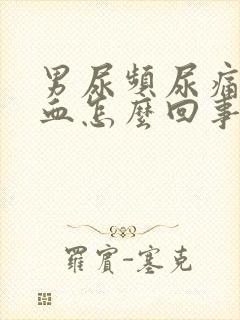 男尿頻尿痛
血怎麼回事
羅賓-塞克